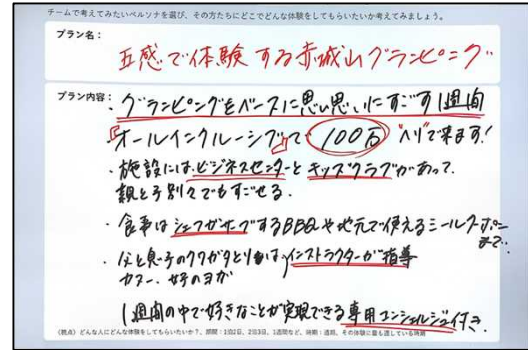 チームで考えてみたいペルソナを選び、その方たちにどこでどんな体験をしてもらいたいか考えてみましょう。
プラン名：
五感で体験する赤城山グランピング
プラン内容：
・グランピングをベースに思い思いにすごす1週間
『オールインクルーシブ』で 100万 ヘリで来ます！
・施設にはビジネスセンターとキッズクラブがあって、
親と子別々でもすごせる。
・食事はシェフがサーブするBBQや地元で使えるミールクーポンまで..
・父と息子のクワガタとりは、インストラクターが指導
カヌー、女子のヨガ
1週間の中で好きなことが実現できる専用コンシェルジュ付き
（視点）どんな人にどんな体験をしてもらいたいか？、期間：1泊2日、2泊3日、1週間など、時期：通期、その体験に最も適している時期